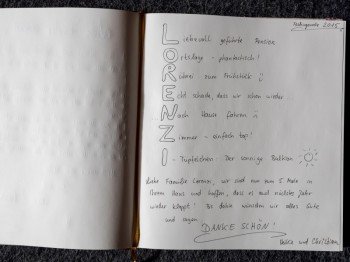 2015
Liebevoll geführte Pension
Ortslage - phantastisch!
Rührei zum Frühstück
Echt schade, dass wir schon wieder...
Nach Hause fahren
Zimmer - einfach top!
I-Tüpfelchen: Der sonnige Balkon
Liebe Familie Lorenzi, wir sind nun zum 5. Male in
Ihrem Haus und hoffen, dass es auch nächstes Jahr
wieder klappt! Bis dahin wünschen wir alles Gute
und sagen
DANKE SCHÖN!
und Christian